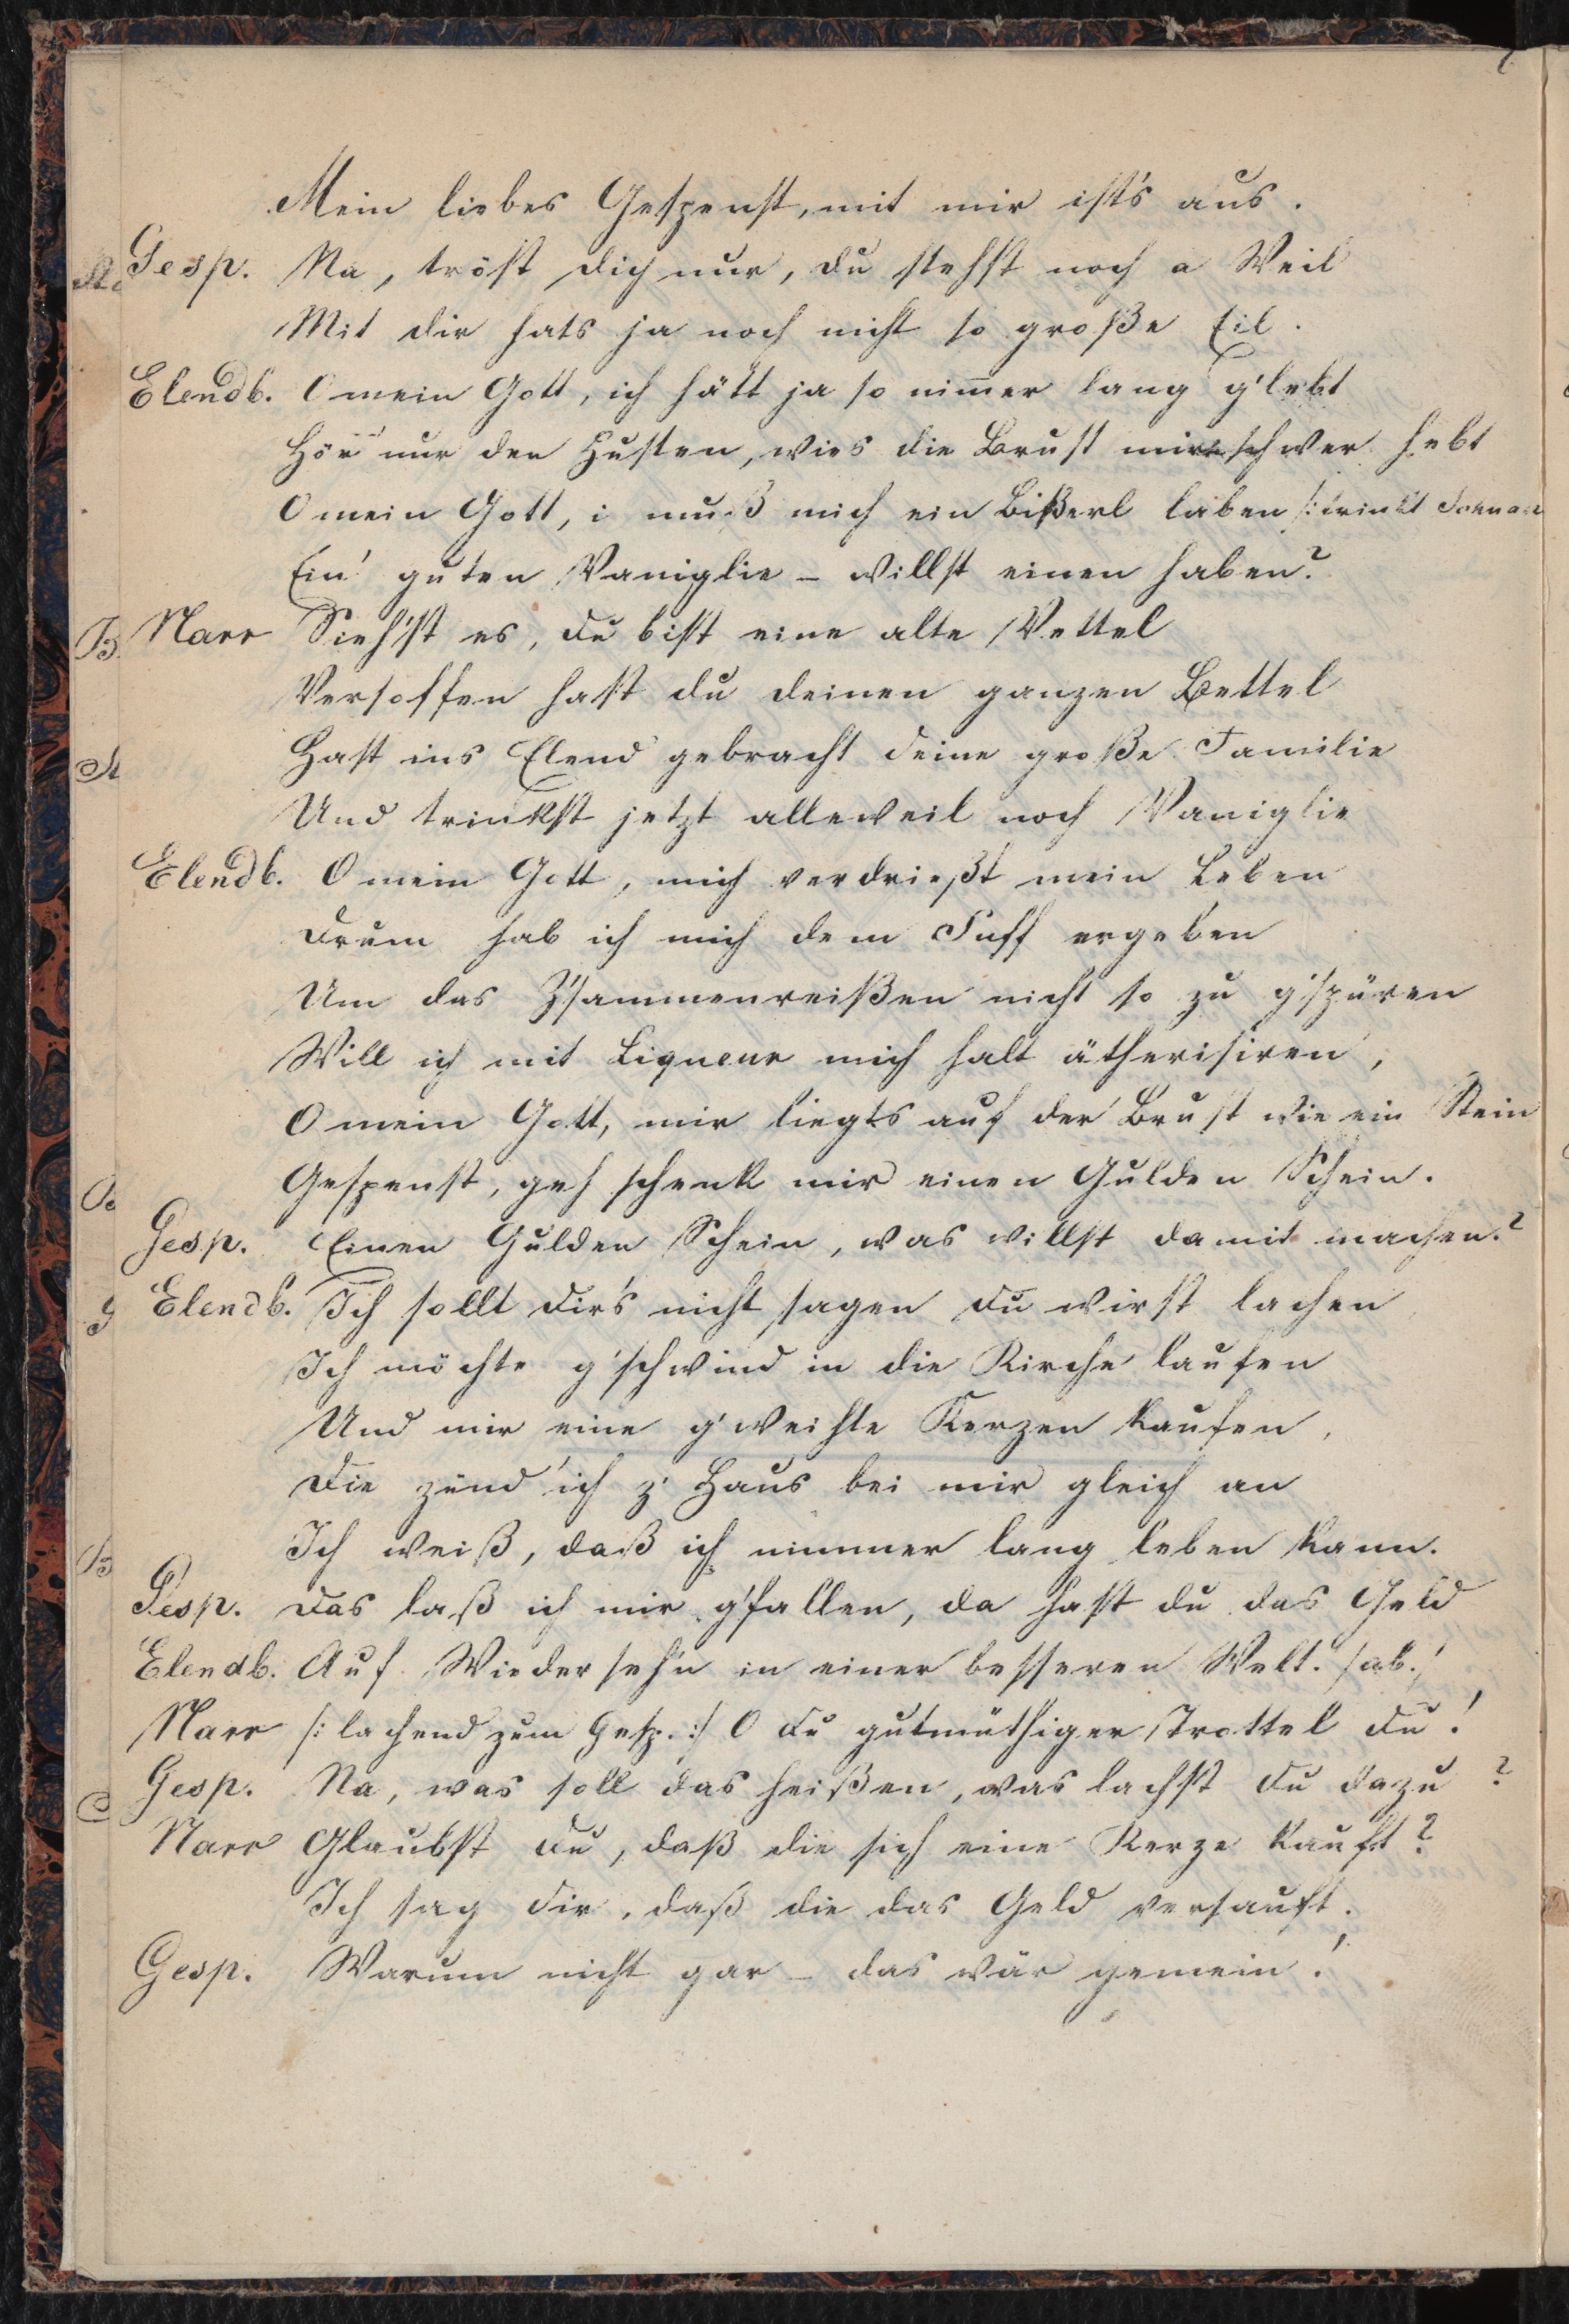 Mein liebes Gespenst, mit mir ist's aus.
Gesp. Na, tröst dich nur, du stehst noch a Weil
Mit dir hats ja noch nicht so große Eil.
Elendb. O mein Gott, ich hätt ja so nim̅er lang g'lebt
Hör nur den Husten, wies die Brust mir schwer hebt
O mein Gott, i muß mich ein Bißerl laben /: trinkt
Ein' guten Vaniglie – willst einen haben?
Narr Sieh'st es, du bist eine alte Vettel
Versoffen hast du deinen ganzen Bettel
Hast ins Elend gebracht deine große Familie
Und trinkst jetzt alleweil noch Vaniglie
Elendb. O mein Gott, mich verdrießt mein Leben
Drum hab ich mich dem Suff ergeben
Um das Z'sammenreißen nicht so zu g'spüren
Will ich mit Liqueur mich halt ätherisiren,
O mein Gott, mir liegt's auf der Brust wie ein Stein
Gespenst, geh schenk mir einen Gulden Schein.
Gesp. Einen Gulden Schein, was willst damit machen?
Elendb. Ich sollt dir's nicht sagen du wirst lachen
Ich möchte g'schwind in die Kirche laufen
Und mir eine g'weihte Kerzen kaufen,
Die zünd' ich z' Haus bei mir gleich an
Ich weiß, daß ich nimmer lang leben kann.
Gesp. Das laß ich mir g'fallen, da hast du das Geld
Elendb. Auf Wiederseh'n in einer besseren Welt. /ab./
Narr /: lachend zum Gesp. :/ O du gutmüthiger Trottel du!
Gesp. Na, was soll das heißen, was lachst du dazu?
Narr Glaubst du, daß die sich eine Kerze kauft?
Ich sag dir, daß die das Geld versauft.
Gesp. Warum nicht gar – das wär gemein!